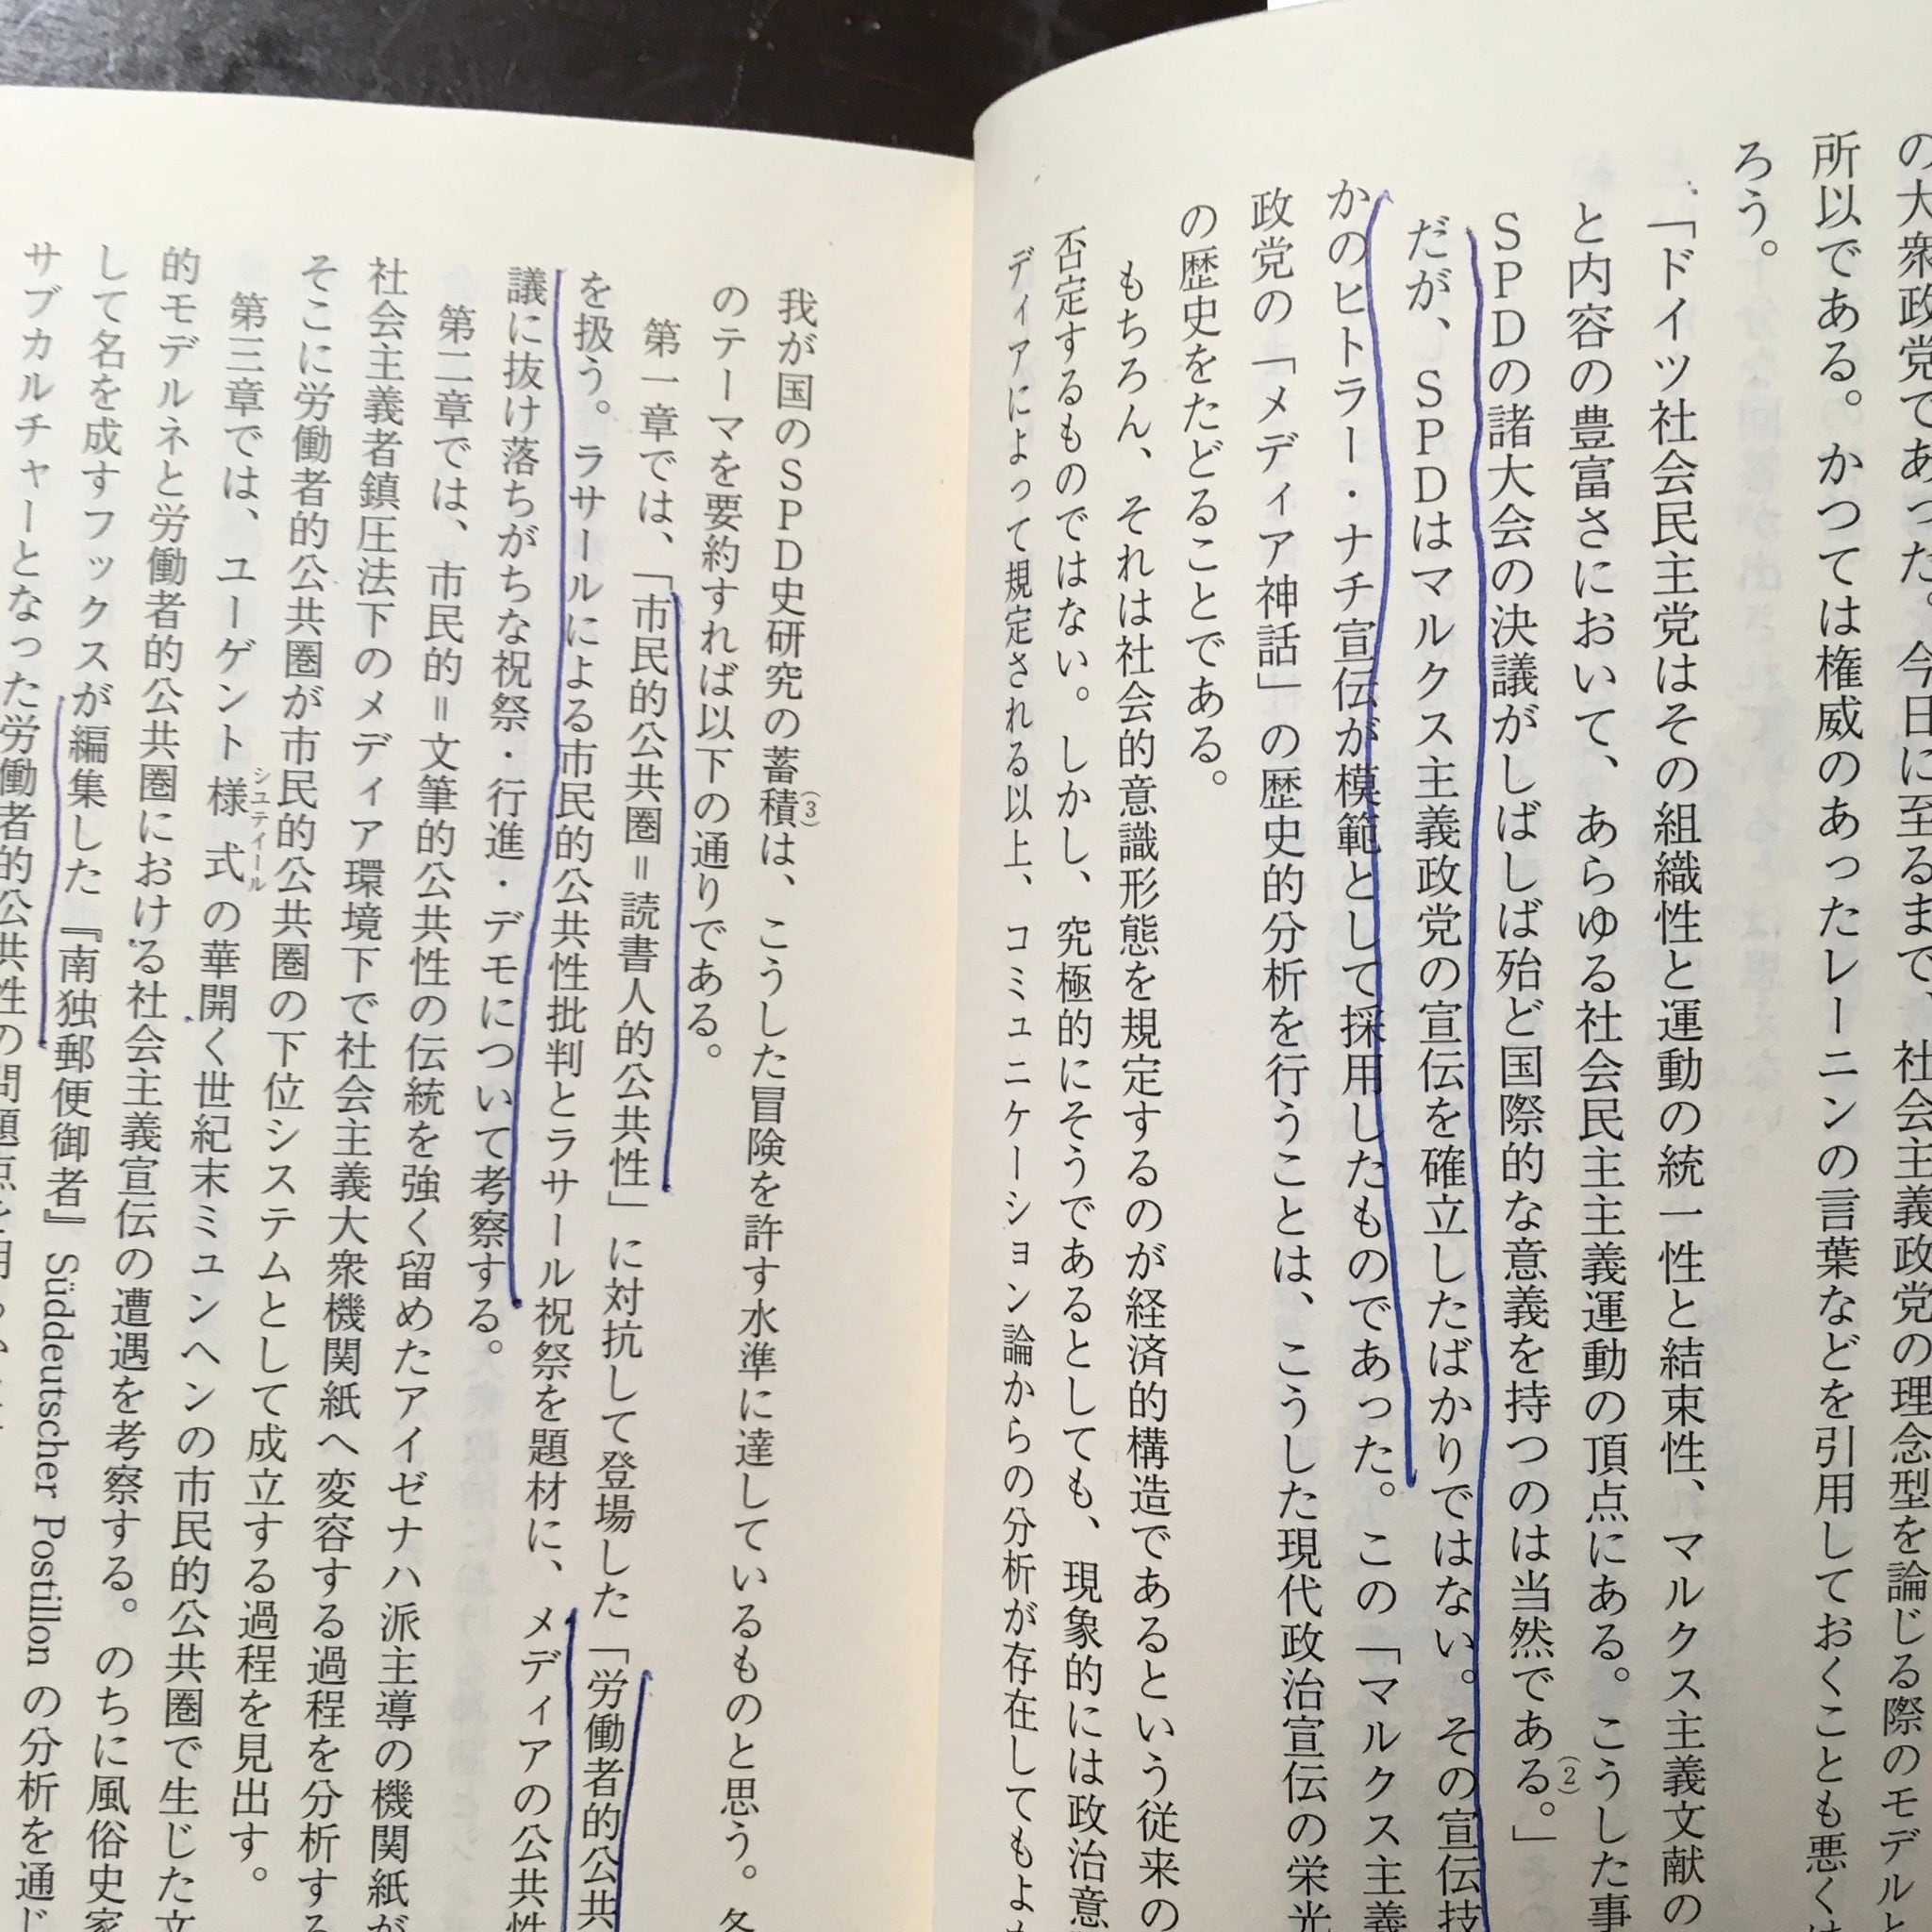 の大衆政党であった。今日に至るまで、社会主義政党の理念型を論じる際のモデルと
所以である。かつては権威のあったレーニンの言葉などを引用しておくことも悪くは
ろう。
「ドイツ社会民主党はその組織性と運動の統一性と結束性、マルクス主義文献の
と内容の豊富さにおいて、あらゆる社会民主主義運動の頂点にある。こうした事
SPDの諸大会の決議がしばしば殆ど国際的な意義を持つのは当然である。(2)」
だが、SPDはマルクス主義政党の宣伝を確立したばかりではない。その宣伝技
かのヒトラー・ナチ宣伝が模範として採用したものであった。この「マルクス主義
政党の「メディア神話」の歴史的分析を行うことは、こうした現代政治宣伝の栄光
の歴史をたどることである。
もちろん、それは社会的意識形態を規定するのが経済的構造であるという従来の
否定するものではない。しかし、究極的にそうであるとしても、現象的には政治意
ディアによって規定される以上、コミュニケーション論からの分析が存在してもよ
我が国のSPD史研究の蓄積(3)は、こうした冒険を許す水準に達しているものと思う。各
のテーマを要約すれば以下の通りである。
第一章では、「市民的公共圏＝読書人的公共性」に対抗して登場した「労働者的公共
を扱う。ラサールによる市民的公共性批判とラサール祝祭を題材に、メディアの公共性
議に抜け落ちがちな祝祭・行進・デモについて考察する。
第二章では、市民的＝文筆的公共性の伝統を強く留めたアイゼナハ派主導の機関紙が
社会主義者鎮圧法下のメディア環境下で社会主義大衆機関紙へ変容する過程を分析する
そこに労働者的公共圏が市民的公共圏の下位システムとして成立する過程を見出す。
第三章では、ユーゲント様式シュティールの華開く世紀末ミュンヘンの市民的公共圏で生じた文
的モデルネと労働者的公共圏における社会主義宣伝の遭遇を考察する。のちに風俗史家
して名を成すフックスが編集した『南独郵便御者』Süddeutscher Postillon の分析を通じ
サブカルチャーとなった労働者的公共性の問題点を